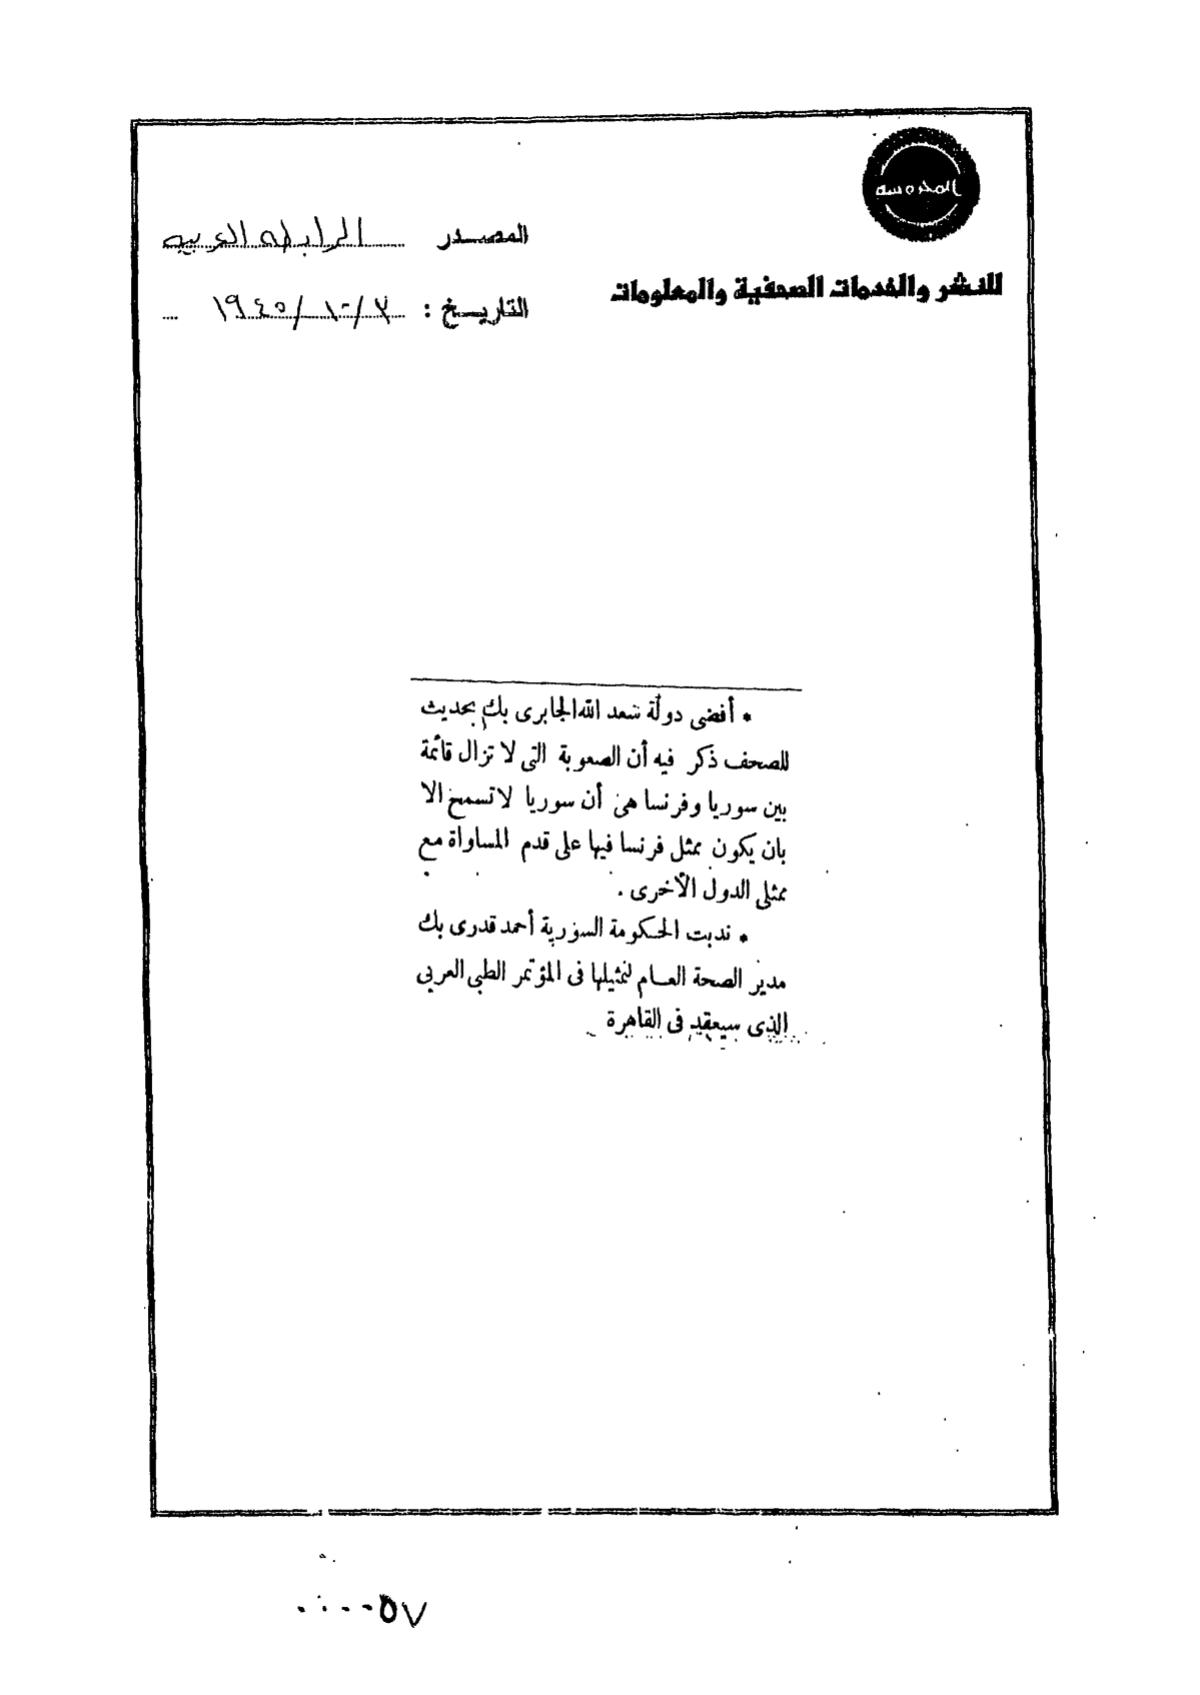 المحروسة
للنشر والخدمات الصحفية والمعلومات
المصدر الرابطه العربيه
التاريخ : ٣/١٠/١٩٤٥
* أفضى دولة سعد الله الجابرى بك بحديث
للصحف ذكر فيه أن الصعوبة التى لا تزال قائمة
بين سوريا وفرنسا هى أن سوريا لا تسمح الا
بان يكون ممثل فرنسا فيها على قدم المساواة مع
ممثلى الدول الأخرى .
* ندبت الحكومة السورية أحمد قدرى بك
مدير الصحة العام لتمثيلها فى المؤتمر الطبى العربى
الذى سيعقد فى القاهرة
٠٠٠٠٥٧